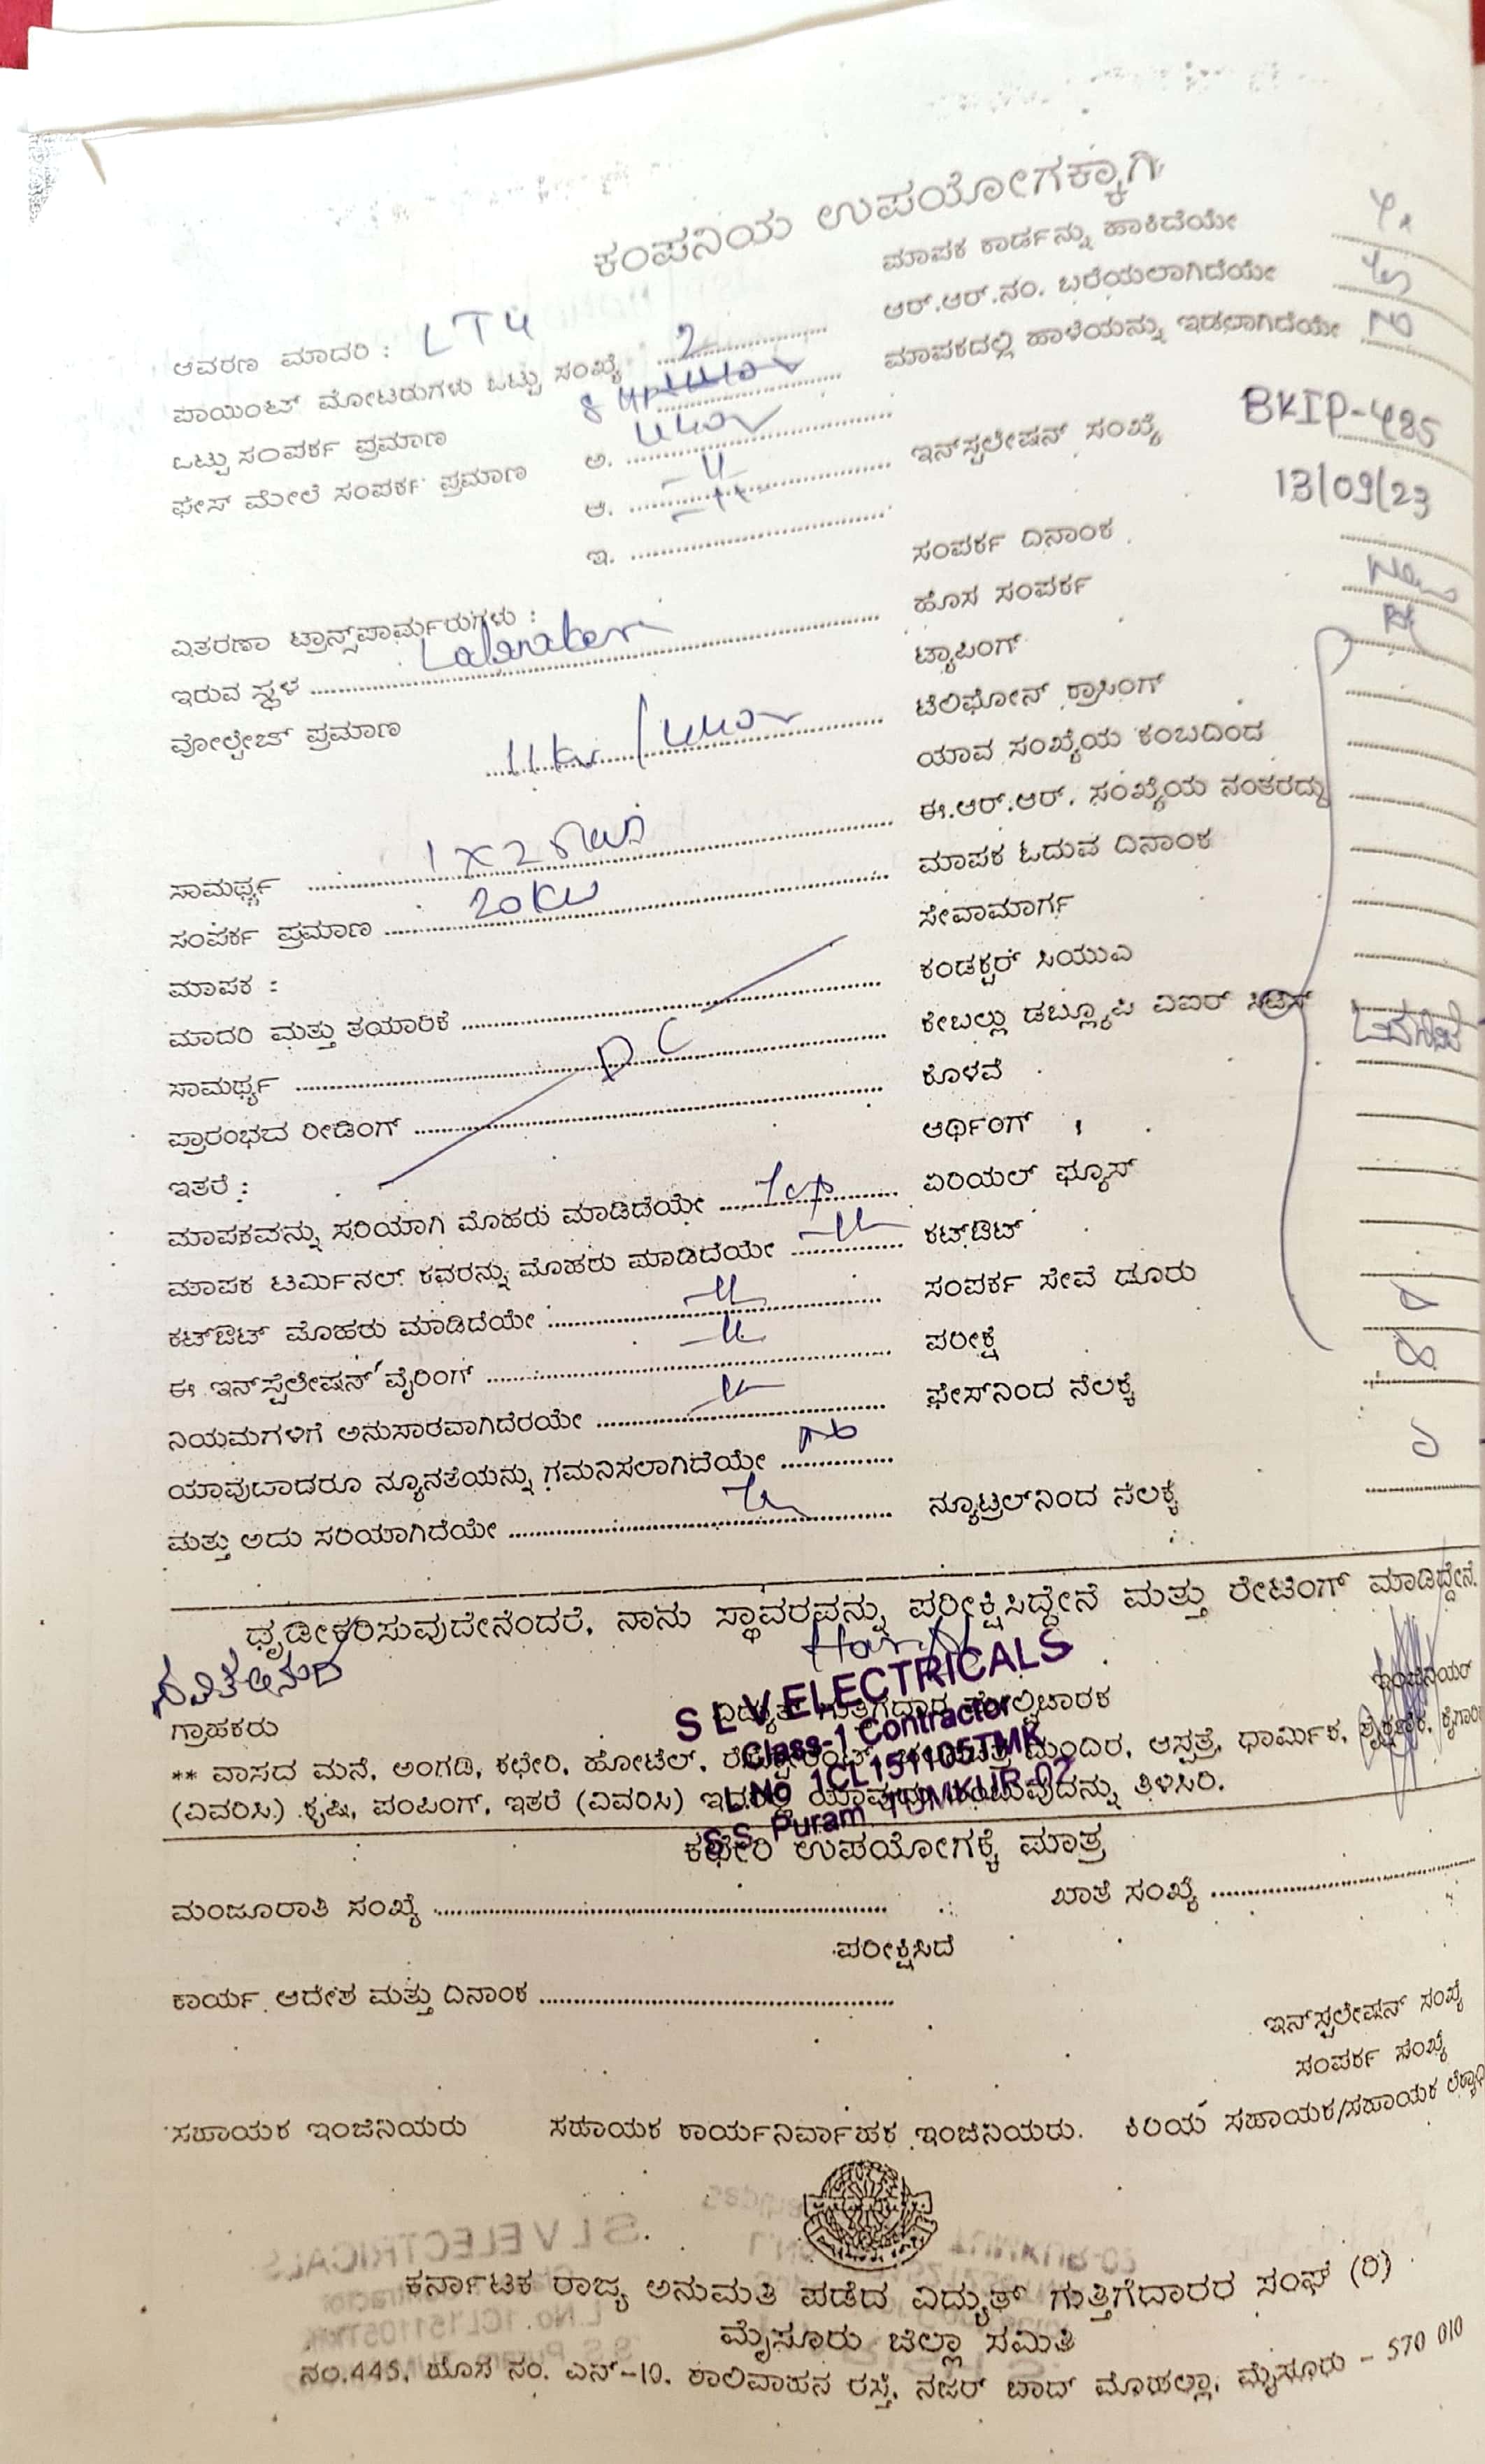 ಕಂಪನಿಯ ಉಪಯೋಗಕ್ಕಾಗಿ
ಆವರಣ ಮಾದರಿ : LT4
ಪಾಯಿಂಟ್ ಮೋಟರುಗಳು ಒಟ್ಟು ಸಂಖ್ಯೆ ..... 2
ಒಟ್ಟು ಸಂಪರ್ಕ ಪ್ರಮಾಣ
ಫೇಸ್ ಮೇಲೆ ಸಂಪರ್ಕ ಪ್ರಮಾಣ ಅ. ..... 440V
ಆ. .....
ಇ. .....
ವಿತರಣಾ ಟ್ರಾನ್ಸ್‌ಪಾರ್ಮರುಗಳು :
ಇರುವ ಸ್ಥಳ .....
ವೋಲ್ಟೇಜ್ ಪ್ರಮಾಣ 11kv / 440V
ಸಾಮರ್ಥ್ಯ ..... 1 x 25
ಸಂಪರ್ಕ ಪ್ರಮಾಣ ..... 20KW
ಮಾಪಕ :
ಮಾದರಿ ಮತ್ತು ತಯಾರಿಕೆ .....
ಸಾಮರ್ಥ್ಯ .....
ಪ್ರಾರಂಭದ ರೀಡಿಂಗ್ .....
ಇತರೆ :
ಮಾಪಕವನ್ನು ಸರಿಯಾಗಿ ಮೊಹರು ಮಾಡಿದೆಯೇ .....
ಮಾಪಕ ಟರ್ಮಿನಲ್ ಕವರನ್ನು ಮೊಹರು ಮಾಡಿದೆಯೇ .....
ಕಟ್‌ಔಟ್ ಮೊಹರು ಮಾಡಿದೆಯೇ .....
ಈ ಇನ್‌ಸ್ಪೆಲೇಷನ್ ವೈರಿಂಗ್ .....
ನಿಯಮಗಳಿಗೆ ಅನುಸಾರವಾಗಿದೆರಯೇ .....
ಯಾವುದಾದರೂ ನ್ಯೂನತೆಯನ್ನು ಗಮನಿಸಲಾಗಿದೆಯೇ ..... No
ಮತ್ತು ಅದು ಸರಿಯಾಗಿದೆಯೇ .....
ಮಾಪಕ ಕಾರ್ಡನ್ನು ಹಾಕಿದೆಯೇ
ಆರ್.ಆರ್.ನಂ. ಬರೆಯಲಾಗಿದೆಯೇ
ಮಾಪಕದಲ್ಲಿ ಹಾಳೆಯನ್ನು ಇಡಲಾಗಿದೆಯೇ
ಇನ್‌ಸ್ಪಲೇಷನ್ ಸಂಖ್ಯೆ BKIP-485
ಸಂಪರ್ಕ ದಿನಾಂಕ 13/09/23
ಹೊಸ ಸಂಪರ್ಕ New
ಟ್ಯಾಪಿಂಗ್
ಟೆಲಿಫೋನ್ ಕ್ರಾಸಿಂಗ್
ಯಾವ ಸಂಖ್ಯೆಯ ಕಂಬದಿಂದ
ಈ.ಆರ್.ಆರ್. ಸಂಖ್ಯೆಯ ನಂತರದ್ದು
ಮಾಪಕ ಓದುವ ದಿನಾಂಕ
ಸೇವಾಮಾರ್ಗ
ಕಂಡಕ್ಟರ್ ಸಿಯುಎ
ಕೇಬಲ್ಲು ಡಬ್ಲ್ಯೂಪಿ ವಿಐಆರ್
ಕೊಳವೆ
ಆರ್ಥಿಂಗ್
ಏರಿಯಲ್ ಫ್ಯೂಸ್
ಕಟ್‌ಔಟ್
ಸಂಪರ್ಕ ಸೇವೆ ದೂರು
ಪರೀಕ್ಷೆ
ಫೇಸ್‌ನಿಂದ ನೆಲಕ್ಕೆ
ನ್ಯೂಟ್ರಲ್‌ನಿಂದ ನೆಲಕ್ಕೆ
ಧೃಡೀಕರಿಸುವುದೇನೆಂದರೆ, ನಾನು ಸ್ಥಾವರವನ್ನು ಪರೀಕ್ಷಿಸಿದ್ದೇನೆ ಮತ್ತು ರೇಟಿಂಗ್ ಮಾಡಿದ್ದೇನೆ.
ಗ್ರಾಹಕರು
ಇಂಜಿನಿಯರ್
S L V ELECTRICALS
Class-1 Contractor
L.No 1CL151105TMK
S.S Puram TUMKUR-02
** ವಾಸದ ಮನೆ, ಅಂಗಡಿ, ಕಛೇರಿ, ಹೋಟೆಲ್, ಮಂದಿರ, ಆಸ್ಪತ್ರೆ, ಧಾರ್ಮಿಕ,
(ವಿವರಿಸಿ) ಕೃಷಿ, ಪಂಪಿಂಗ್, ಇತರೆ (ವಿವರಿಸಿ) ತಿಳಿಸಿರಿ.
ಕಛೇರಿ ಉಪಯೋಗಕ್ಕೆ ಮಾತ್ರ
ಮಂಜೂರಾತಿ ಸಂಖ್ಯೆ ..... ಖಾತೆ ಸಂಖ್ಯೆ .....
ಪರೀಕ್ಷಿಸಿದೆ
ಕಾರ್ಯ ಆದೇಶ ಮತ್ತು ದಿನಾಂಕ .....
ಇನ್‌ಸ್ಪಲೇಷನ್ ಸಂಖ್ಯೆ
ಸಂಪರ್ಕ ಸಂಖ್ಯೆ
ಸಹಾಯಕ ಇಂಜಿನಿಯರು ಸಹಾಯಕ ಕಾರ್ಯನಿರ್ವಾಹಕ ಇಂಜಿನಿಯರು. ಕಿರಿಯ ಸಹಾಯಕ/ಸಹಾಯಕ
ಕರ್ನಾಟಕ ರಾಜ್ಯ ಅನುಮತಿ ಪಡೆದ ವಿದ್ಯುತ್ ಗುತ್ತಿಗೆದಾರರ ಸಂಘ (ರಿ)
ಮೈಸೂರು ಜಿಲ್ಲಾ ಸಮಿತಿ
ನಂ.445, ಹೊಸ ನಂ. ಎನ್-10, ಶಾಲಿವಾಹನ ರಸ್ತೆ, ನಜರ್ ಬಾದ್ ಮೊಹಲ್ಲಾ, ಮೈಸೂರು - 570 010